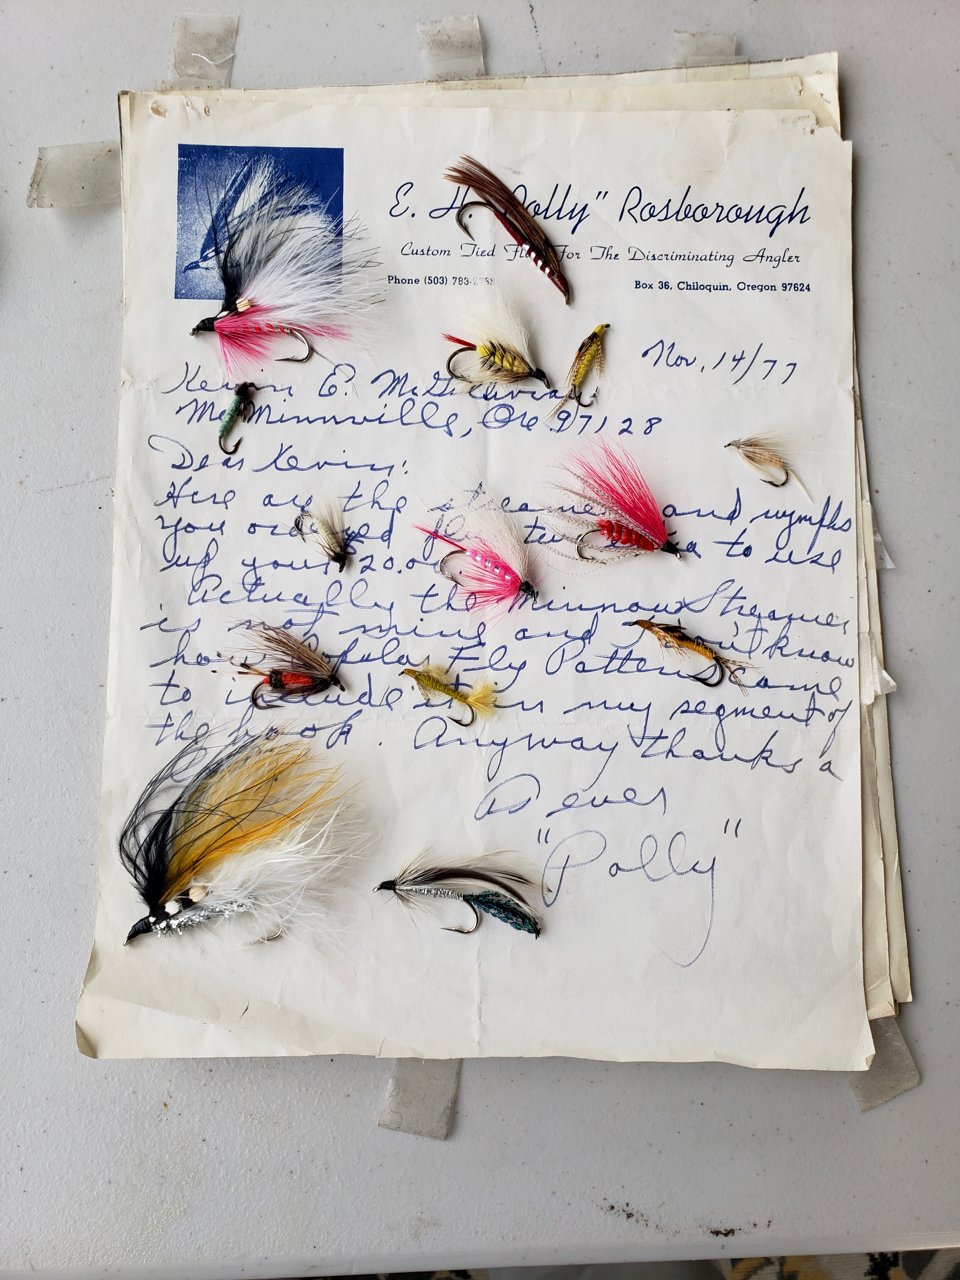 E. H. "Polly" Rosborough
Custom Tied For The Discriminating Angler
Phone (503) 783- Box 36, Chiloquin, Oregon 97624
Nov. 14/77
Kevin E.
McMinnville, Ore 97128
Dear Kevin:
Here are the and nymphs
you to use
up your 20.00
Actually the Minnow Streamer
is not mine and I don't know
how Popular Fly Patterns came
to include it in my segment of
the book. Anyway thanks a
As ever
"Polly"